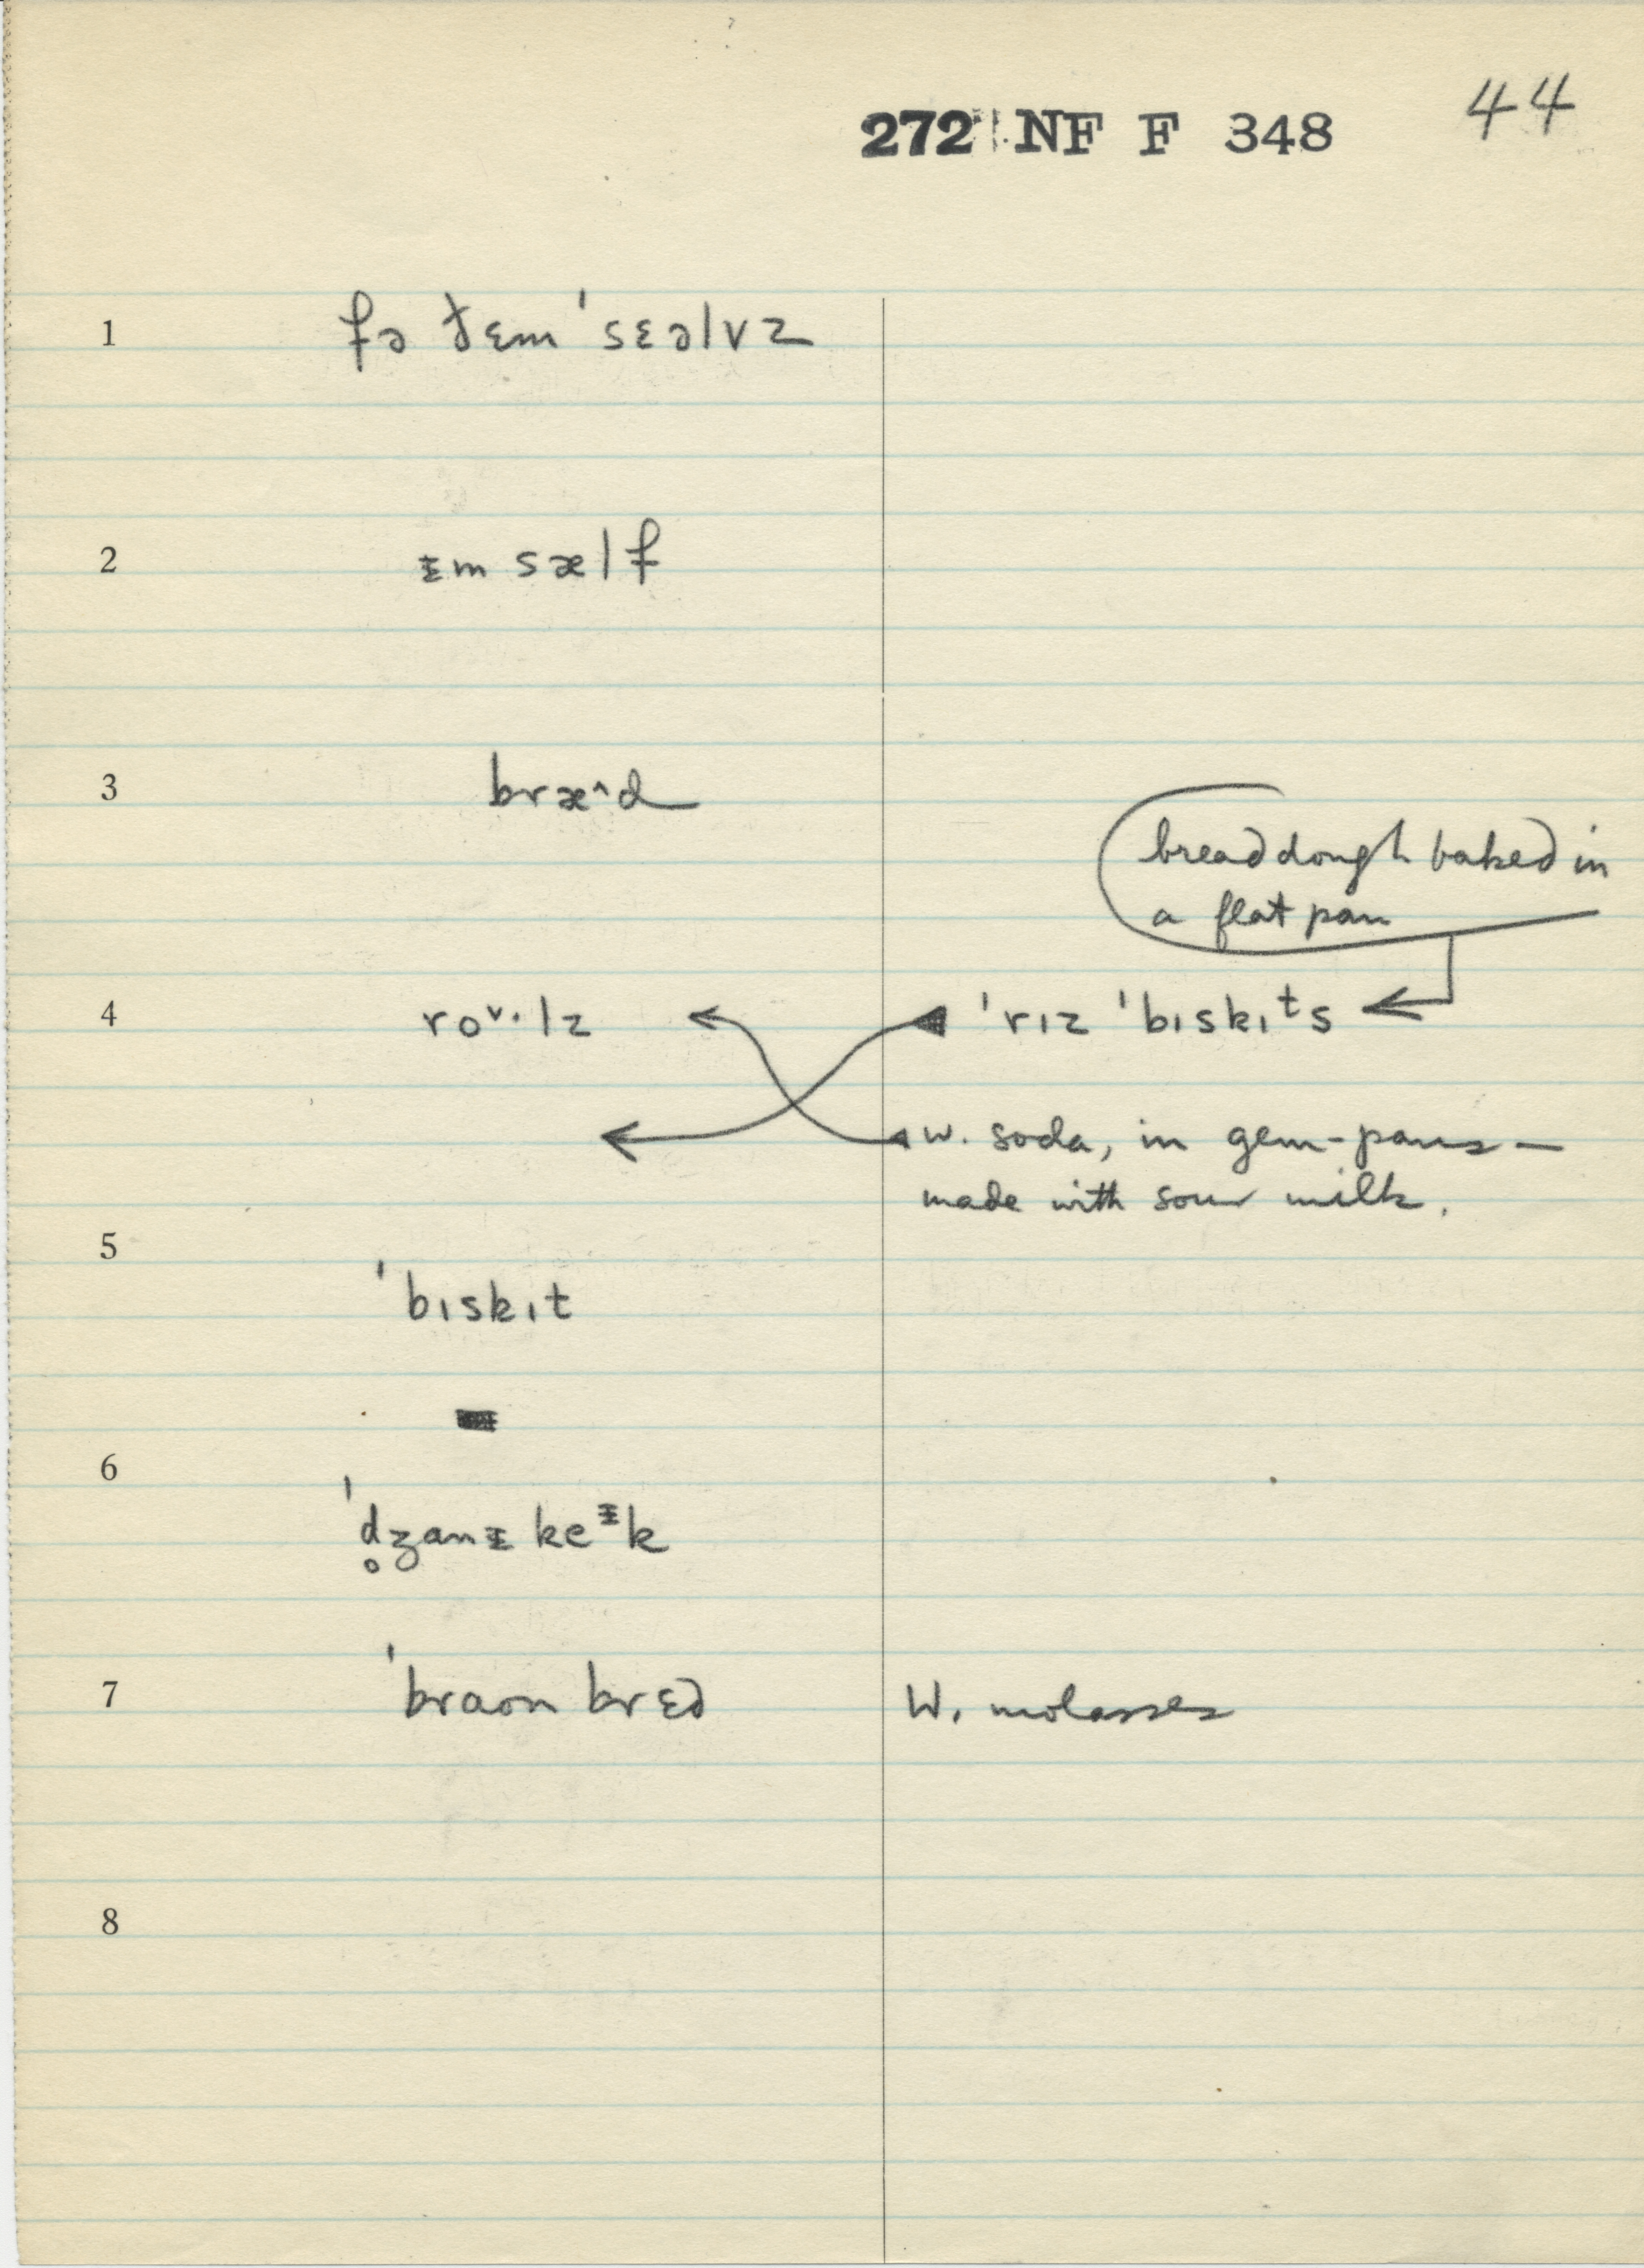 272 NF F 348 44
1 fə ðɛm ˈsɛəlvz
2 ᵻm sælf
3 bræ^d
bread dough baked in
a flat pan
4 roᵛ·lz ˈrɪz ˈbɪskɪᵗs
w. soda, in gem-pans —
made with sour milk.
5 ˈbɪskɪt
6 ˈd̥ʒanᵻ keᵻk
7 ˈbraʊn brɛd W. molasses
8